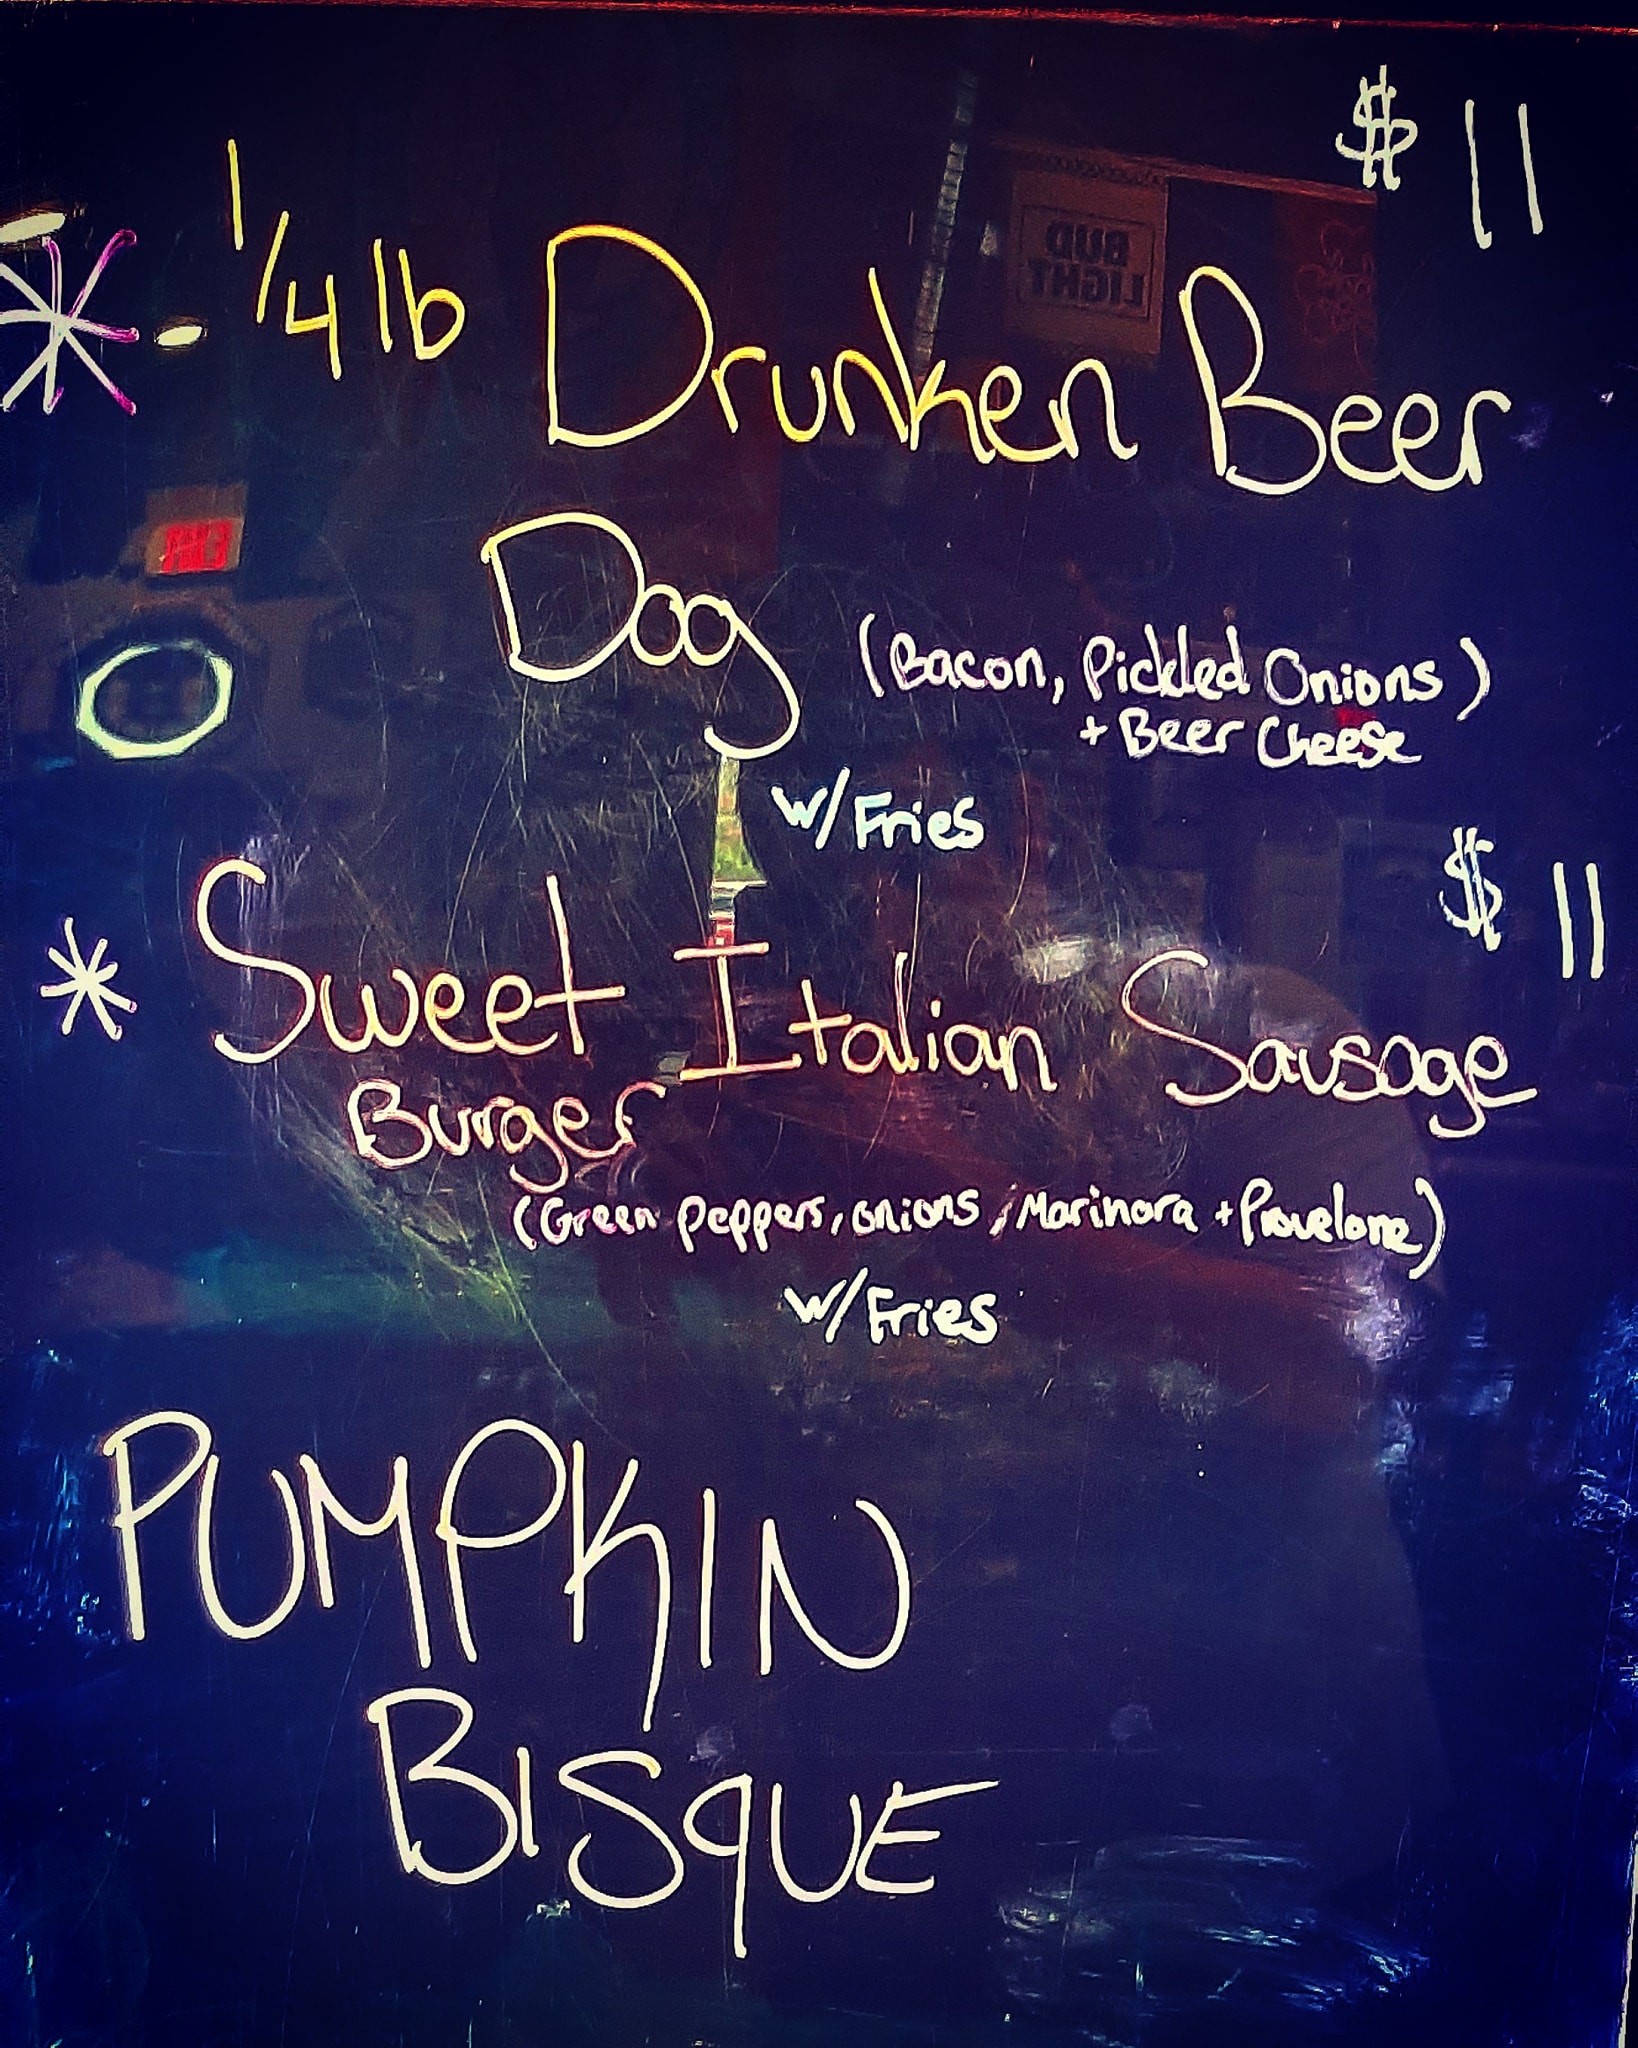 $11
* 1/4 lb Drunken Beer
Dog (Bacon, Pickled Onions)
+ Beer Cheese
w/ Fries
$11
* Sweet Italian Sausage
Burger
(Green Peppers, onions, Marinara + Provelone)
w/ Fries
PUMPKIN
BISQUE
BUD
LIGHT